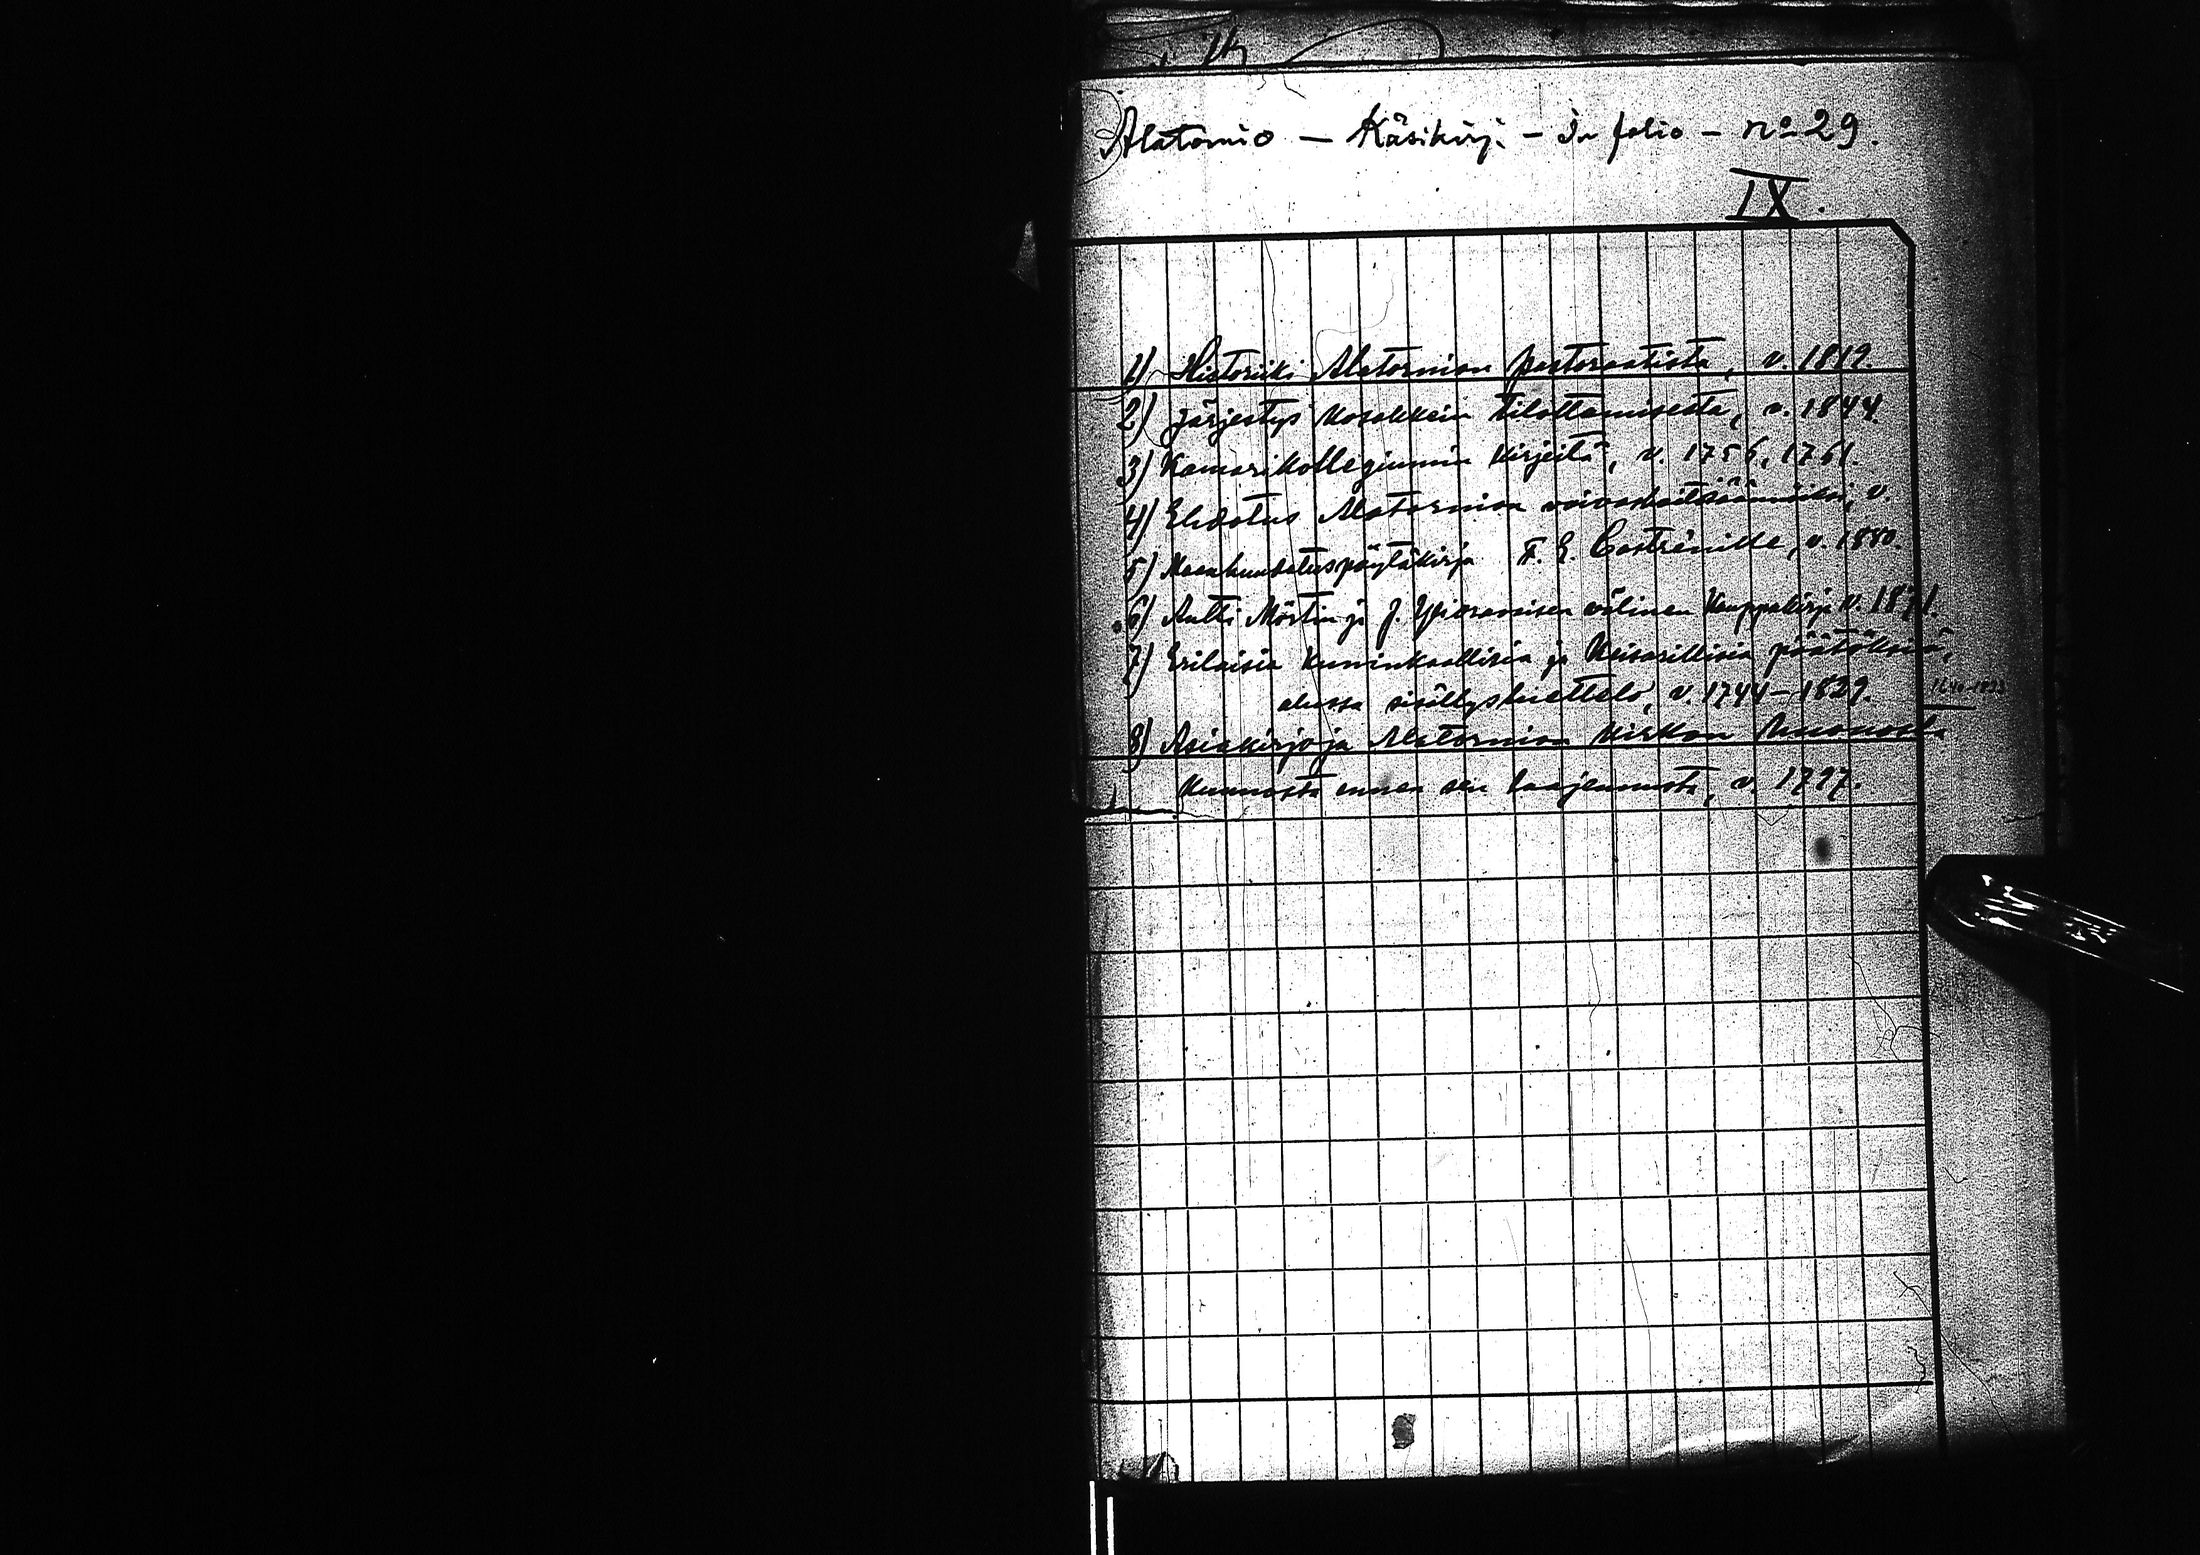 Alatornio — Käsikirj. — in folio — no 29.
IX.
1) Historiikki Alatornion pastoraatista, v. 1819.
2) Järjestys kasakkain tilattamisesta, v. 1844.
3) Kamarikollegiumin kirjeitä, v. 1756, 1761.
4) Ehdotus Alatornion v.
5) Maakuulutuspöytäkirja F. E. Castrénille, v. 1880.
6) Antti Mörtin ja J. välinen kauppakirja v. 1871.
7) Erilaisia kuninkaallisia ja keisarillisia päätöksiä,
alussa sisällysluettelo, v. 1744—1829.
8) Asiakirjoja Alatornion kirkon
kunnosta ennen sen laajennusta, v. 1797.